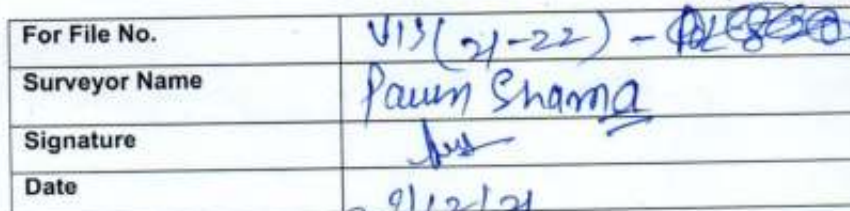 For File No. VIS(21-22) -
Surveyor Name Pawan Sharma
Signature
Date 9/12/21